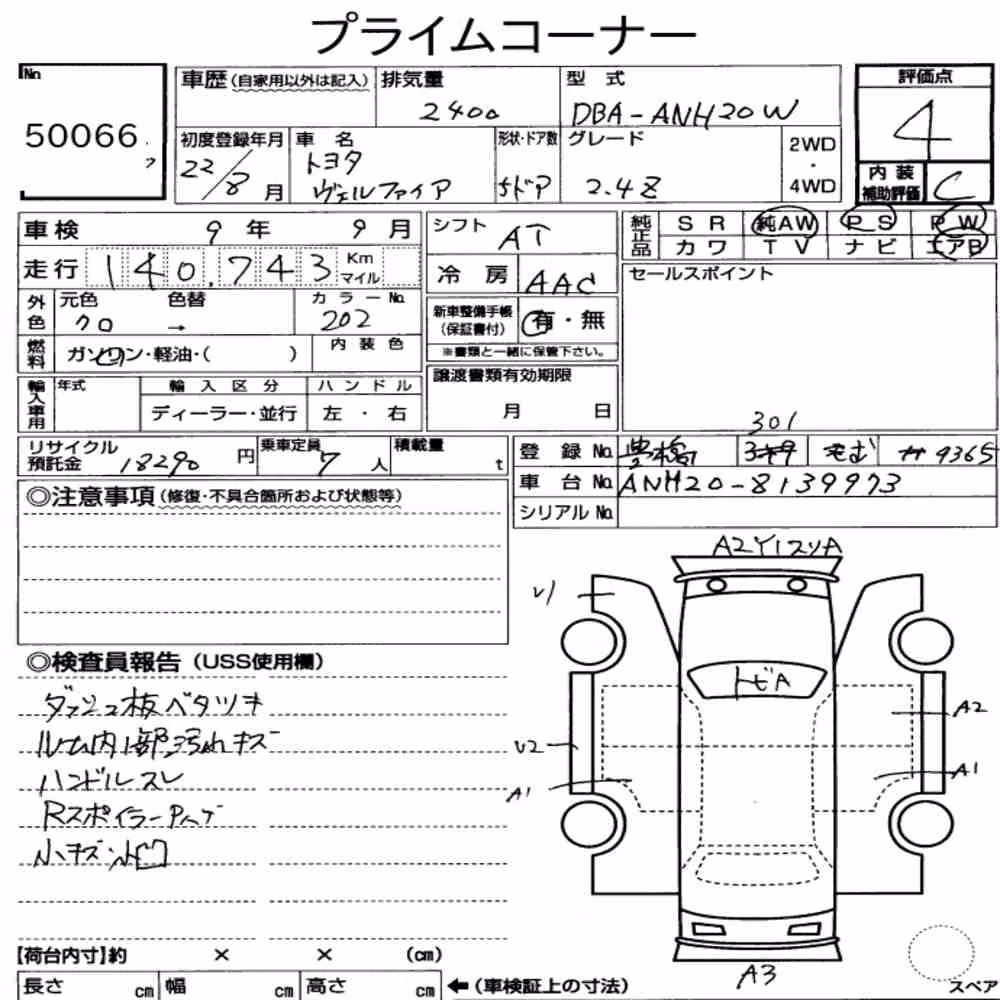 プライムコーナー
No.
50066
車歴 (自家用以外は記入)
排気量
2400
型 式
DBA-ANH20W
評価点
4
初度登録年月
22/8月
車 名
トヨタ
ヴェルファイア
形状・ドア数
5ドア
グレード
2.4Z
2WD
・
4WD
内 装
補助評価
C
車検 9年 9月
シフト
AT
純正品
SR 純AW PS PW
カワ TV ナビ エアB
走行 140,743 Km マイル
冷 房
AAC
セールスポイント
外色
元色
クロ
色替
→
カラーNo.
202
新車整備手帳
(保証書付)
有・無
※書類と一緒に保管下さい。
燃料
ガソリン・軽油・( )
内 装 色
輸入車用
年式
輸 入 区 分
ディーラー・並行
ハ ン ド ル
左 ・ 右
譲渡書類有効期限
月 日
301
リサイクル
預託金
18290 円
乗車定員
7 人
積載量
t
登 録 No.
豊橋
9365
車 台 No.
ANH20-8139973
シリアル No.
◎注意事項 (修復・不具合箇所および状態等)
◎検査員報告 (USS使用欄)
ダッシュ板ベタツキ
ルーム内1部汚れキズ
ハンドルスレ
Rスポイラーハゲ
小キズ小凹
A2
U1
トビA
A2
U2
A1
A1
A3
スペア
【荷台内寸】約 × × (cm)
長さ cm 幅 cm 高さ cm ←(車検証上の寸法)